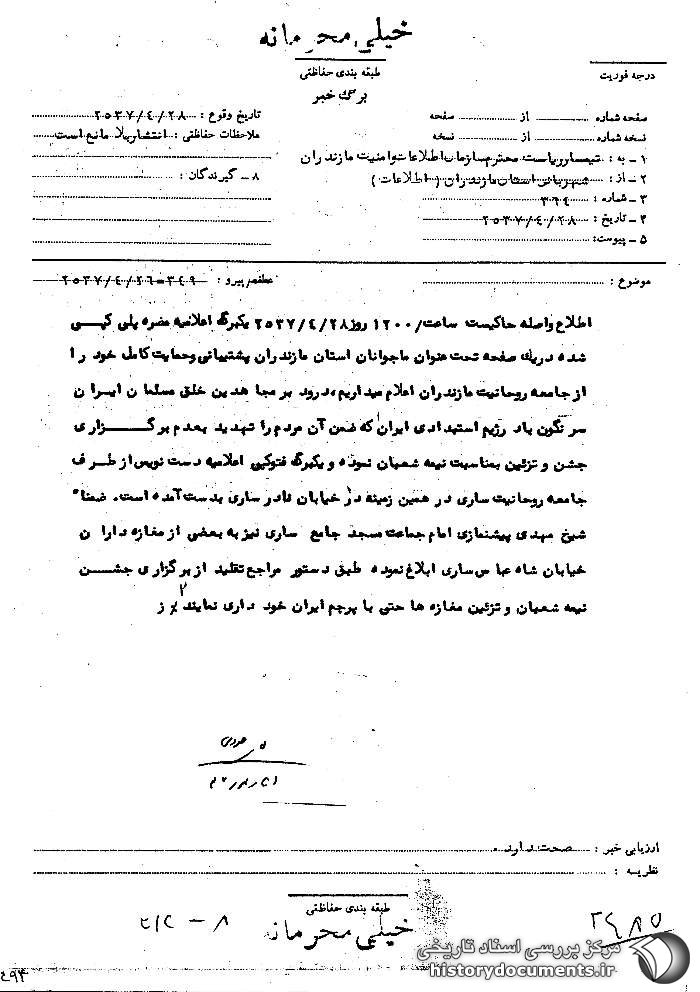 خیلی محرمانه
طبقه بندی حفاظتی
درجه فوریت
برگ خبر
صفحه شماره از صفحه
نسخه شماره از نسخه
۱ـ به : تیمسار ریاست محترم سازمان اطلاعات و امنیت مازندران
۲ـ از : شهربانی استان مازندران ( اطلاعات )
۳ـ شماره :
۴ـ تاریخ : ۲۵۳۷/۴/۲۸
۵ـ پیوست:
تاریخ وقوع : ۲۵۳۷/۴/۲۸
ملاحظات حفاظتی : انتشار بلا مانع است
۸ـ گیرندگان :
موضوع :
پیرو : ۳۴۹-۲۵۳۷/۴/۲۶
اطلاع واصله حاکیست ساعت/ ۱۲۰۰ روز ۲۵۳۷/۴/۲۸ یکبرگ اعلامیه مضره پلی کپی
شده در یک صفحه تحت عنوان ماجوانان استان مازندران پشتیبانی وحمایت کامل خود را
از جامعه روحانیت مازندران اعلام میداریم، درود بر مجاهدین خلق مسلمان ایران
سرنگون باد رژیم استبدادی ایران که ضمن آن مردم را تهدید بعدم برگزاری
جشن و تزئین بمناسبت نیمه شعبان نموده و یکبرگ فتوکپی اعلامیه دست نویس از طرف
جامعه روحانیت ساری در همین زمینه در خیابان نادر ساری بدست آمده است. ضمنا"
شیخ مهدی پیشنمازی امام جماعت مسجد جامع ساری نیز به بعضی از مغازه داران
خیابان شاه عباس ساری ابلاغ نموده طبق دستور مراجع تقلید از برگزاری جشن
نیمه شعبان و تزئین مغازه ها حتی با پرچم ایران خود داری نمایند
ارزیابی خبر : صحت دارد .
نظریه :
طبقه بندی حفاظتی
خیلی محرمانه
مرکز بررسی اسناد تاریخی
historydocuments.ir